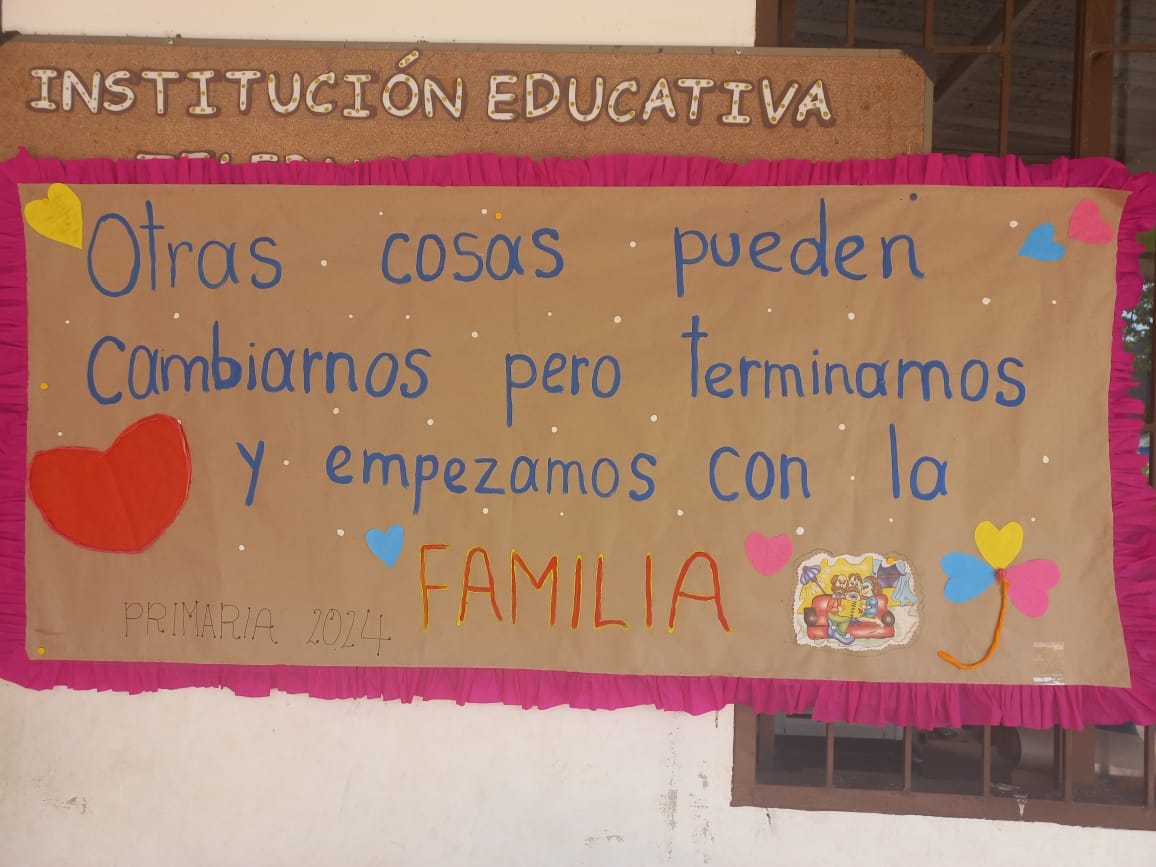 INSTITUCIÓN EDUCATIVA
Otras cosas pueden
Cambiarnos pero terminamos
y empezamos con la
FAMILIA
PRIMARIA 2024